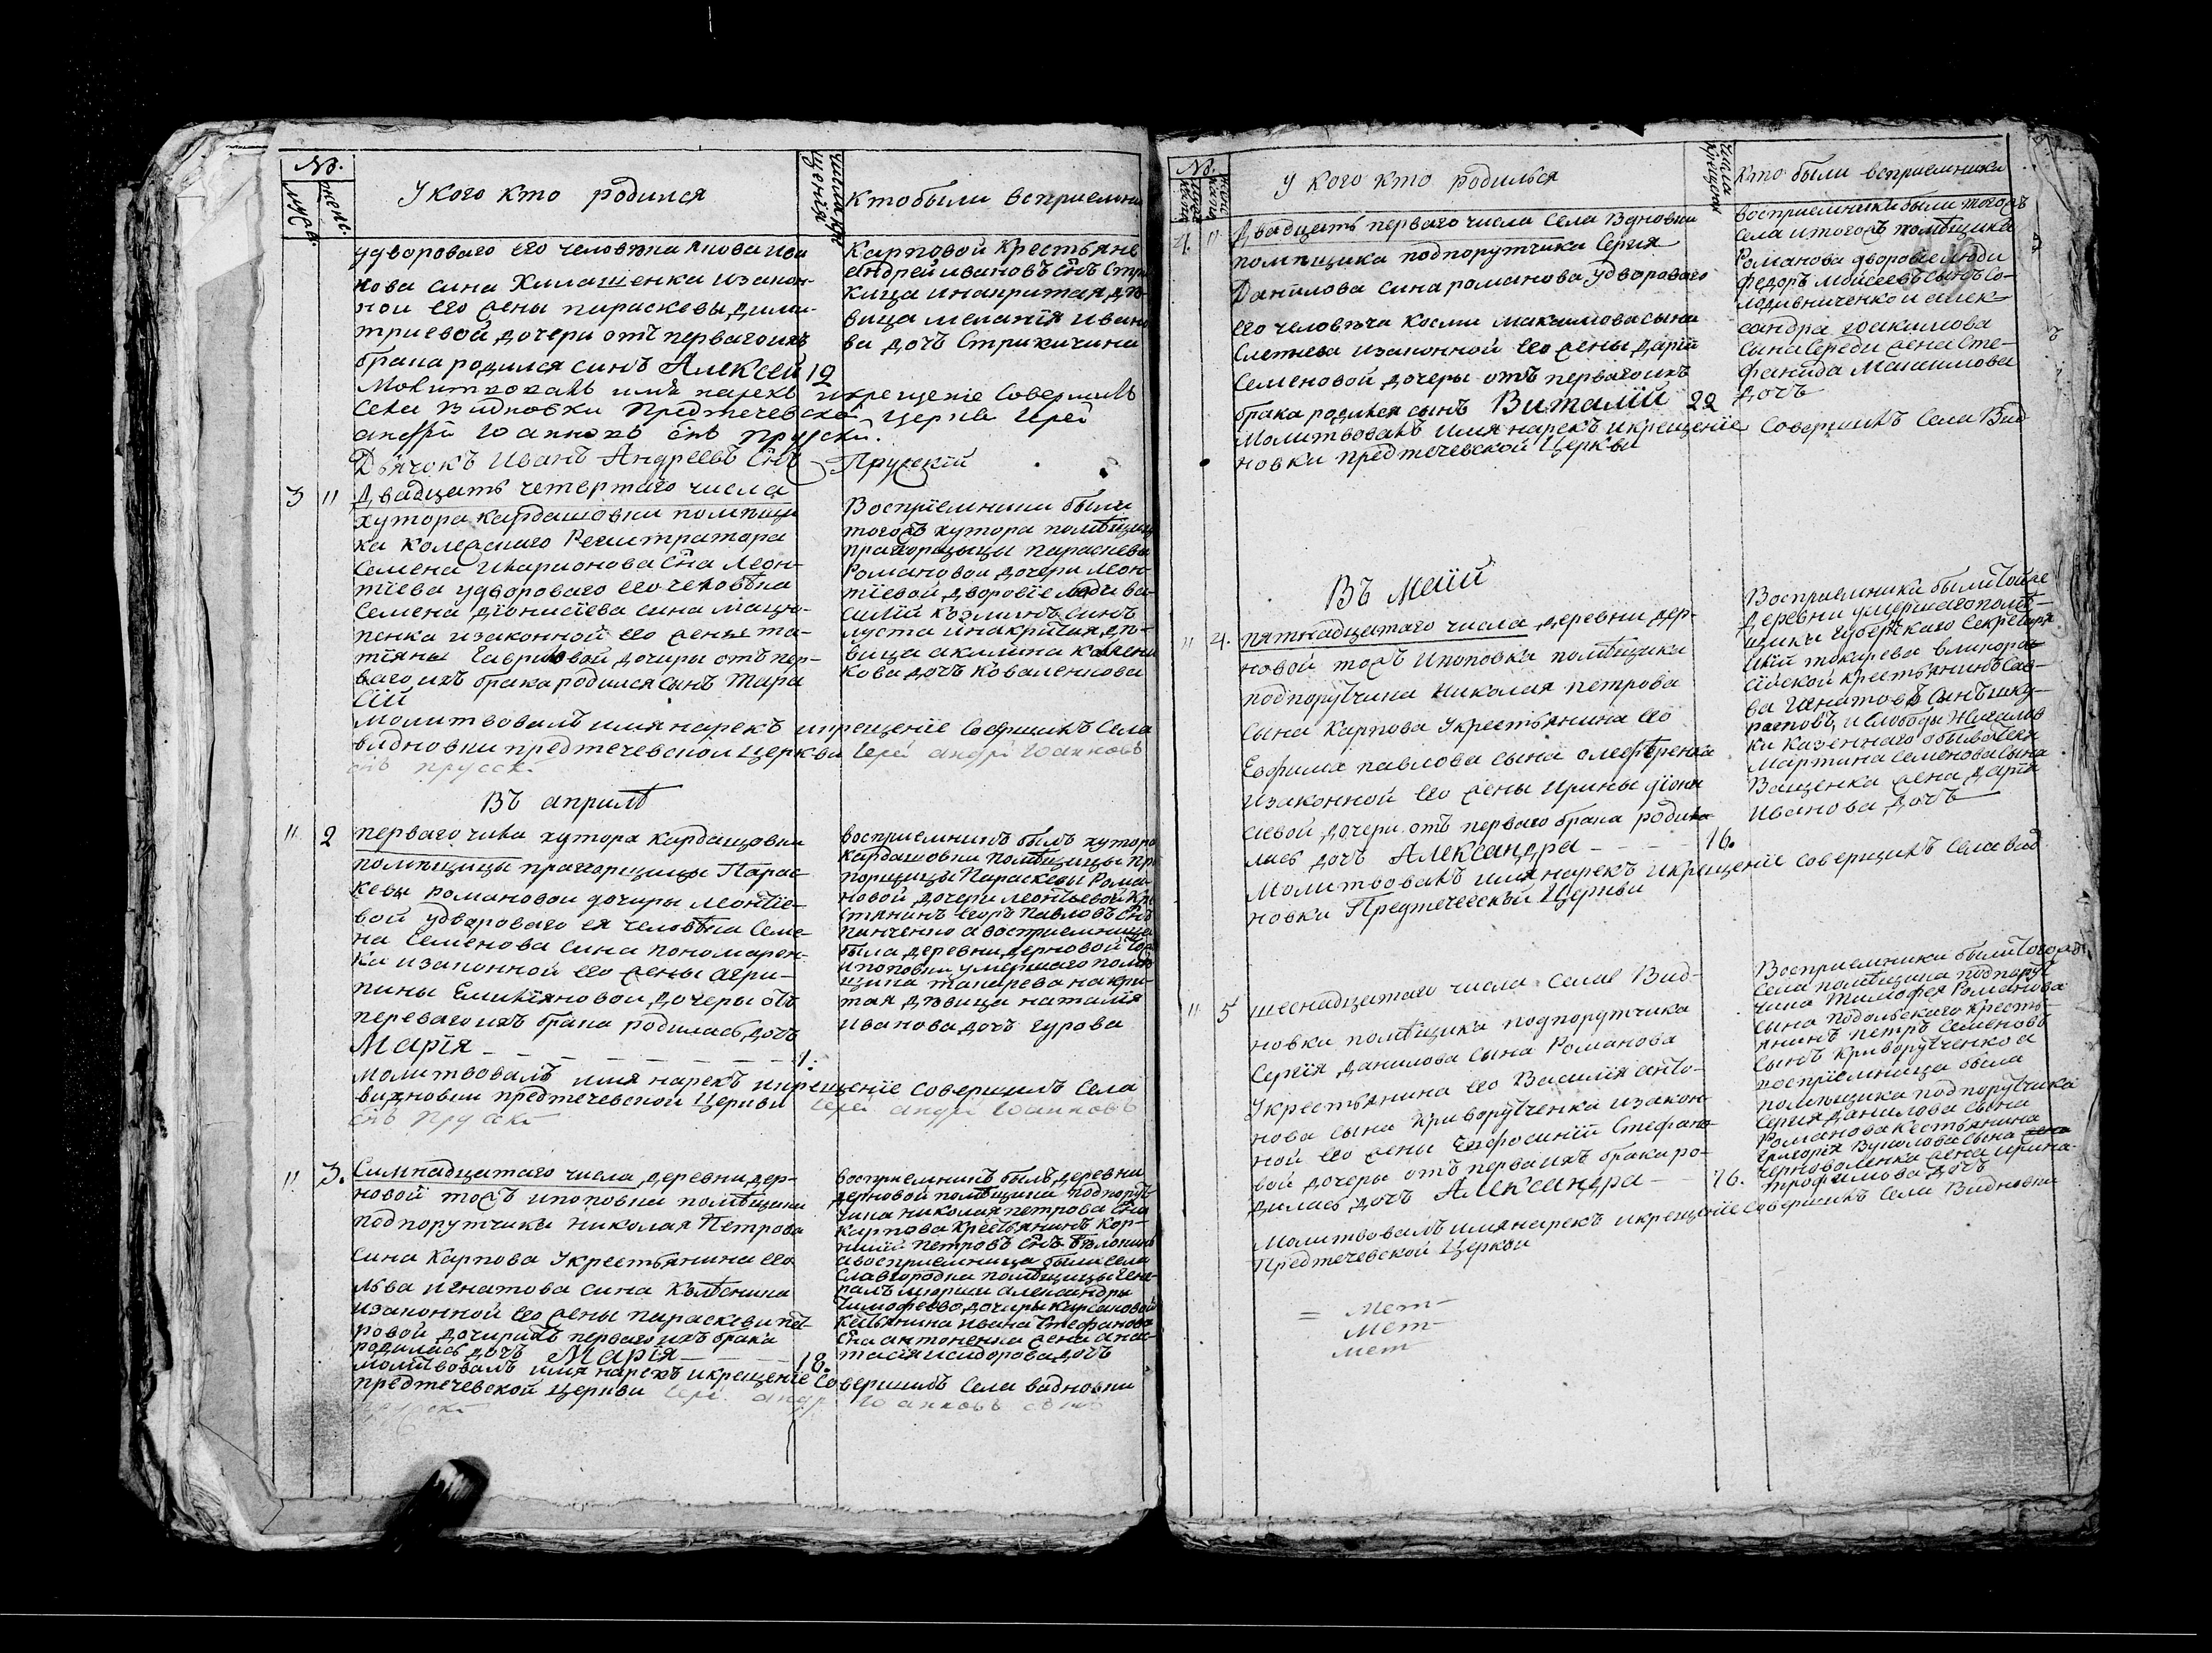 №.
мужс.
женс.
У кого кто родился
числа кре
щенія
Кто были восприемни
удвороваго его человѣка Якова Ива
нова сина Хила енка изакон
ной его жены параскевы, дими
триевой дочери отъ перваго ихъ
брака родился синъ Алексей 12
Молитвовалъ имя нарекъ икрещеніе Совершилъ
Села Видновки Предтечевской церкви Іерей
андрей Іоанновъ снъ прусскій.
Дьячокъ Иванъ Андреевъ Снъ Прусскій
Карповой крестьяне
андрей ивановъ снъ Стри
кица инакритая, дѣ
вица меланія Ивано
ва дочъ Стрикичина
3 " Двадцать четвертаго числа
хутора кардашовки помѣщи
ка колежскаго Регистратора
Семена Иларионова Сна Леон-
тіева удвороваго его человѣка
Семена діонисіева сина мацю-
пенка изаконной его жены та-
тіяны Гавриловой, дочиры отъ пер-
ваго ихъ брака родился сынъ Тара
сій
молитвовалъ имя нарекъ икрещеніе Совершилъ Села
видновки предтечевской Церкви Іерей андрей Іоанновъ
снъ прусскі
Восприемники были
тогожъ хутора помѣщицы
прапорщицы параскевы
Романовой дочери леон-
тіевой, дворовіе люди ва-
силій козминъ синъ
луста инакритая, дѣ-
вица акилина
кова дочъ Коваленкова
Въ априлѣ
" 2 перваго числа хутора кардашовки
помѣщицы прапорщицы Парас
кевы романовой дочиры леонтіе-
вой удвороваго ея человѣка Семе-
на Семенова сина пономарен-
ка изаконной его жены агри-
пины Емиліяновой, дочеры отъ
переваго ихъ брака родилась, дочъ
Марія - - - - - - - 1.
молитвовалъ имя нарекъ икрещеніе совершилъ Села
видновки предтечевской Церкви Іерей андрей Іоанновъ
снъ прусскі
восприемникъ былъ хутора
кардашовки помѣщицы пра
порщицы Параскевы Рома-
новой дочери леонтьевой кре
стянинъ Егоръ Павловъ снъ
панченко а восприемница
была деревни, дерновой тожъ
ипоповки умершаго помѣ
щика такарева накри-
тая дѣвица наталія
иванова дочъ гурова
" 3. Симнадцатаго числа, деревни, дер-
новой тожъ ипоповки помѣщика
подпорутчика Николая Петрова
сина Карпова Укрестьянина его
лва игнатова сина
изаконной его жены параскеви пет-
ровой дочириотъ перваго ихъ брака
родилась дочъ Марія - - - 18.
молитвовалъ имя нарекъ икрещеніе Совершилъ Села видновки
предтечевской Церкви Іерей андрей Іоанновъ
восприемникъ былъ деревни
дерновой помѣщика подпорут-
чика николая петрова сна
карпова крестьянинъ кор-
нилій петровъ снъ
а восприемница была села
славгородка помѣщицы гене-
ралъ александры
тимофеево, дочиры
ивана стефанова
сна антоненка жена анас-
тасія исидорова дочъ
№.
У кого кто родилься
числа
крещения
Кто были восприемники
4. " Двадцать перваго числа села Вдновки
помѣщика подпорутчика Сергія
Данилова сина романова Удвороваго
его человѣка Косми максимова сына
Слетнева изаконной его жены Дарій
Семеновой дочеры отъ перваго ихъ
брака родился сынъ Виталій 22
Молитвовалъ имя нарекъ икрещеніе Совершилъ Села Вид
новки предтечевской Церкви
восприемники были тогожъ
села итогожъ помѣщика
Романова дворовіе люди
Федоръ Моисеевъ сынъ Со-
лодивниченко и алек-
сандра Іоакимова
сына Середи жена Сте-
фанида Максимова
дочъ
Въ Маій
" 4. пятнадцатаго числа деревни дер-
новой тожъ ипоповка помѣщика
подпорутчика николая петрова
сына Карпова Укрестьянина его
Ефима павлова сына олеференка
изаконной его жены ирины діони
сіевой, дочери отъ перваго брака роди
лась дочъ Александра - - - 16.
Молитвовалъ имя нарекъ икрещеніе совершилъ села вид
новки Предтечевскѣй Церкви
Восприемника были тойже
деревни умершаго помѣ-
щика губернскаго секретаря
токарева
крестьянинъ Сав-
ва игнатовъ Сынъ шку-
ратовъ, и слободы Жихаров
ки казеннаго обывателя
мартина семенова сына
Ващенка жена дарія
Иванова дочъ
" 5 шеснадцатаго числа Села Вид-
новки помѣщика подпорутчика
Сергія данилова сына Романова
Укрестьянина его Василія анто-
нова сына Криворутченка изакон-
ной его жени Евфосиній Стефано-
вой дочеры отъ перва ихъ брака ро-
дилась дочъ Александра - 16.
Молитвовалъ имя нарекъ икрещеніе совершилъ Села Видновки
Предтечевской Церкви
Восприемники были тогожъ
Села помѣщика подпорут
чика Тимофея Романова
сына Подольскаго кресть-
янинъ петръ Семеновъ
сынъ криворутченко а
восприемница была
помѣщика подпорутчика
Сергія данилова сына
Романова
Григорія Вуколова сына
Черноваленка жена ирина
трофимова дочъ
= Мет-
Мет-
мет